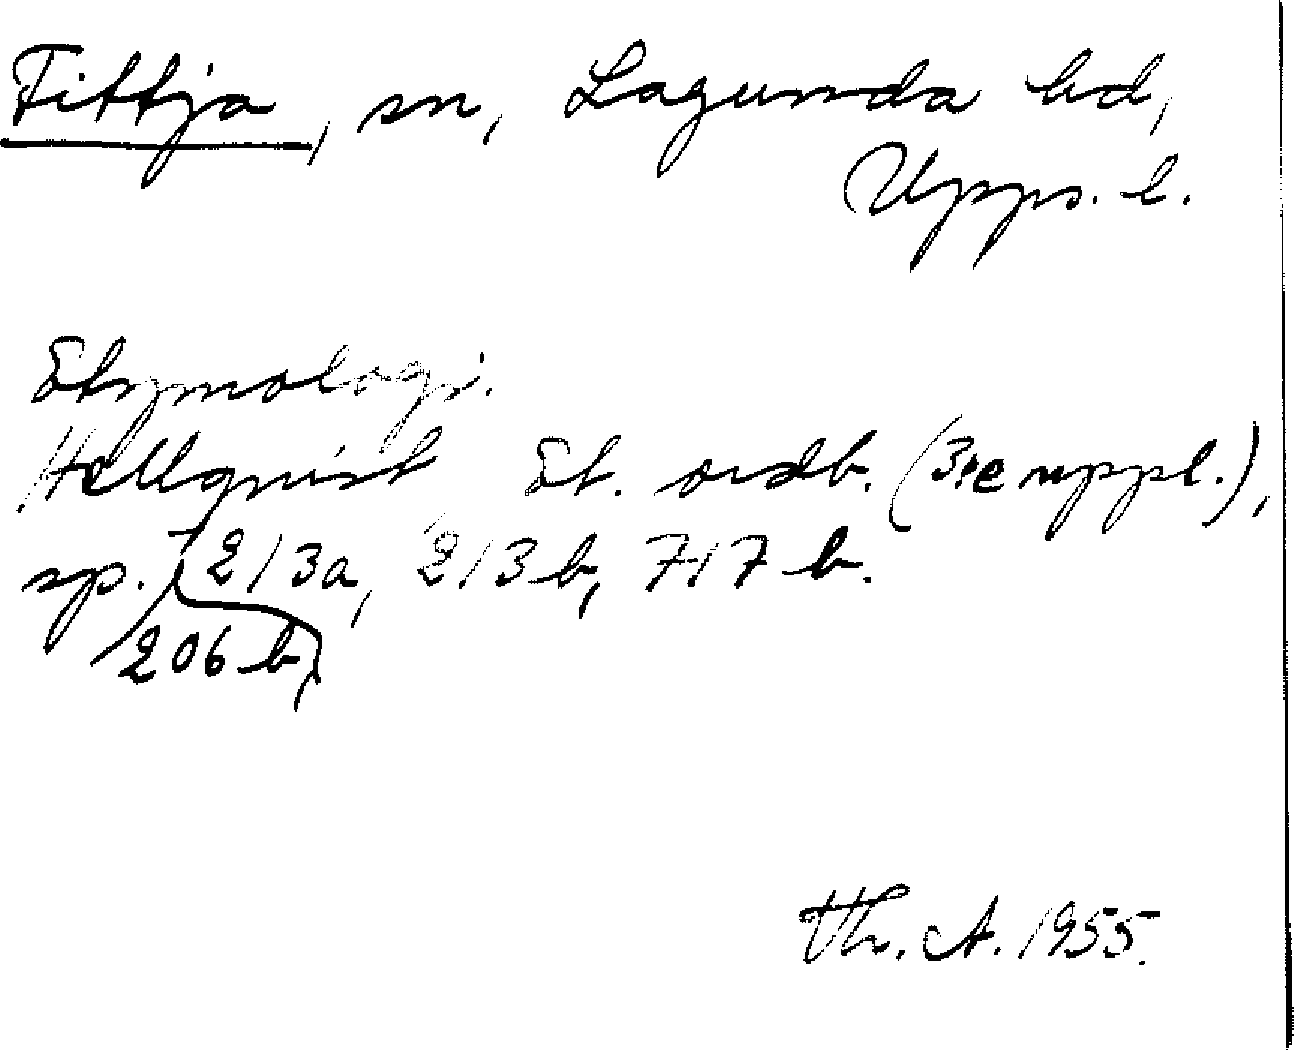 Fittja, sn, Lagunda hd,
Upps. l.
Etymologi.
Hellquist Et. ordb. (3:e uppl.),
sp. 206 b, 213a, 213 b, 717 b.
Th. A. 1955.